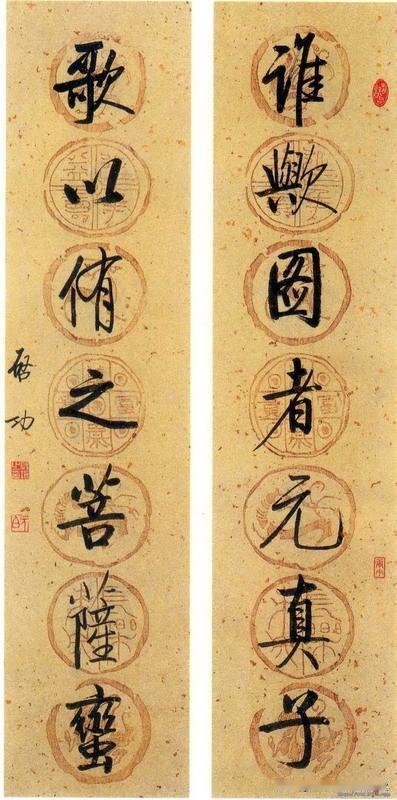 谁歟图者元真子
歌以侑之菩薩蠻
启功